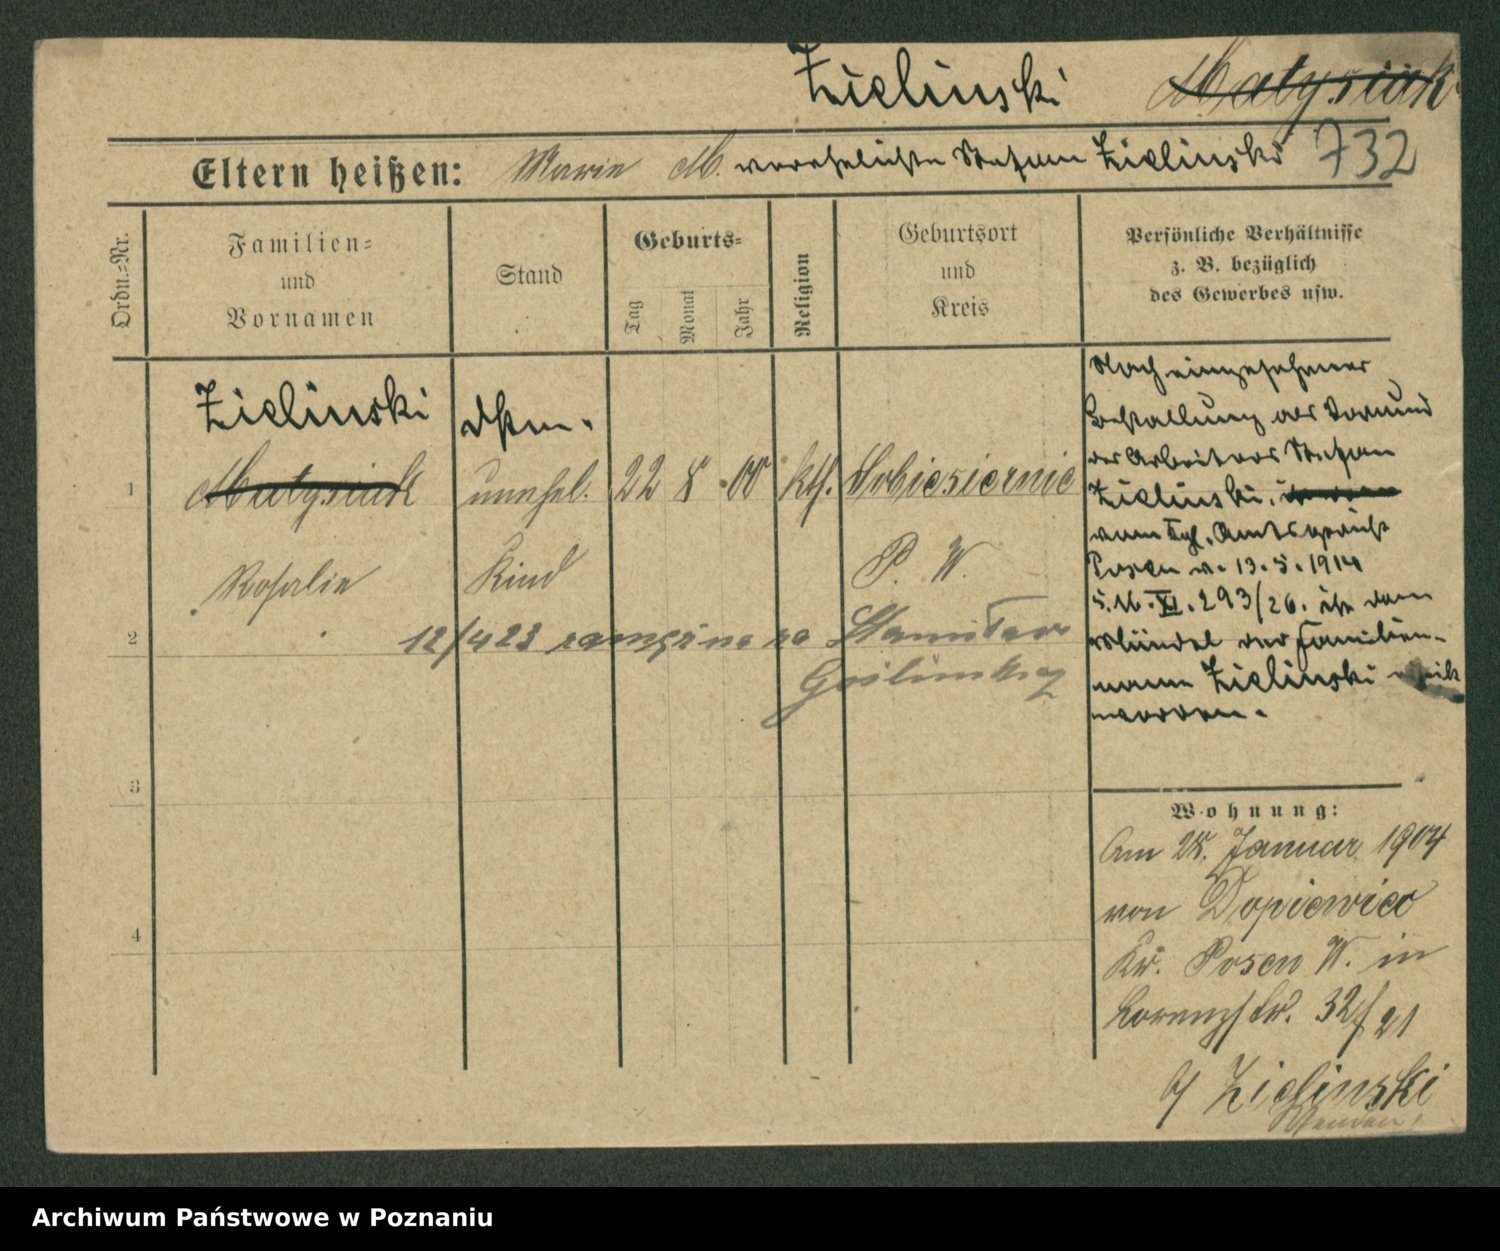 Zielinski Matysiak
Eltern heißen: Marie M. verehelichte Stefan Zielinski 732
Ordn.-Nr.
Familien-
und
Vornamen
Stand
Geburts-
Tag
Monat
Jahr
Religion
Geburtsort
und
Kreis
Persönliche Verhältnisse
z. B. bezüglich
des Gewerbes usw.
Zielinski
1 Matysiak unehel. 22 8 00 kth. Sobiesiernie
Rosalie Kind P. W.
2 12/4 23 zamężna za Stanisław
3
4
Nach eingesehener
Bestallung als Vormund
des Arbeiters Stefan
Zielinski,
vom Kgl. Amtsgericht
Posen v. 13.5.1914
XI. 293/26. ist dem
Mündel der Familien-
name Zielinski
worden.
Wohnung:
Am 28. Januar 1904
von Dopiewiec
Kr. Posen W. in
Lorenzstr. 32/21
b/ Zielinski
Wenden!
Archiwum Państwowe w Poznaniu